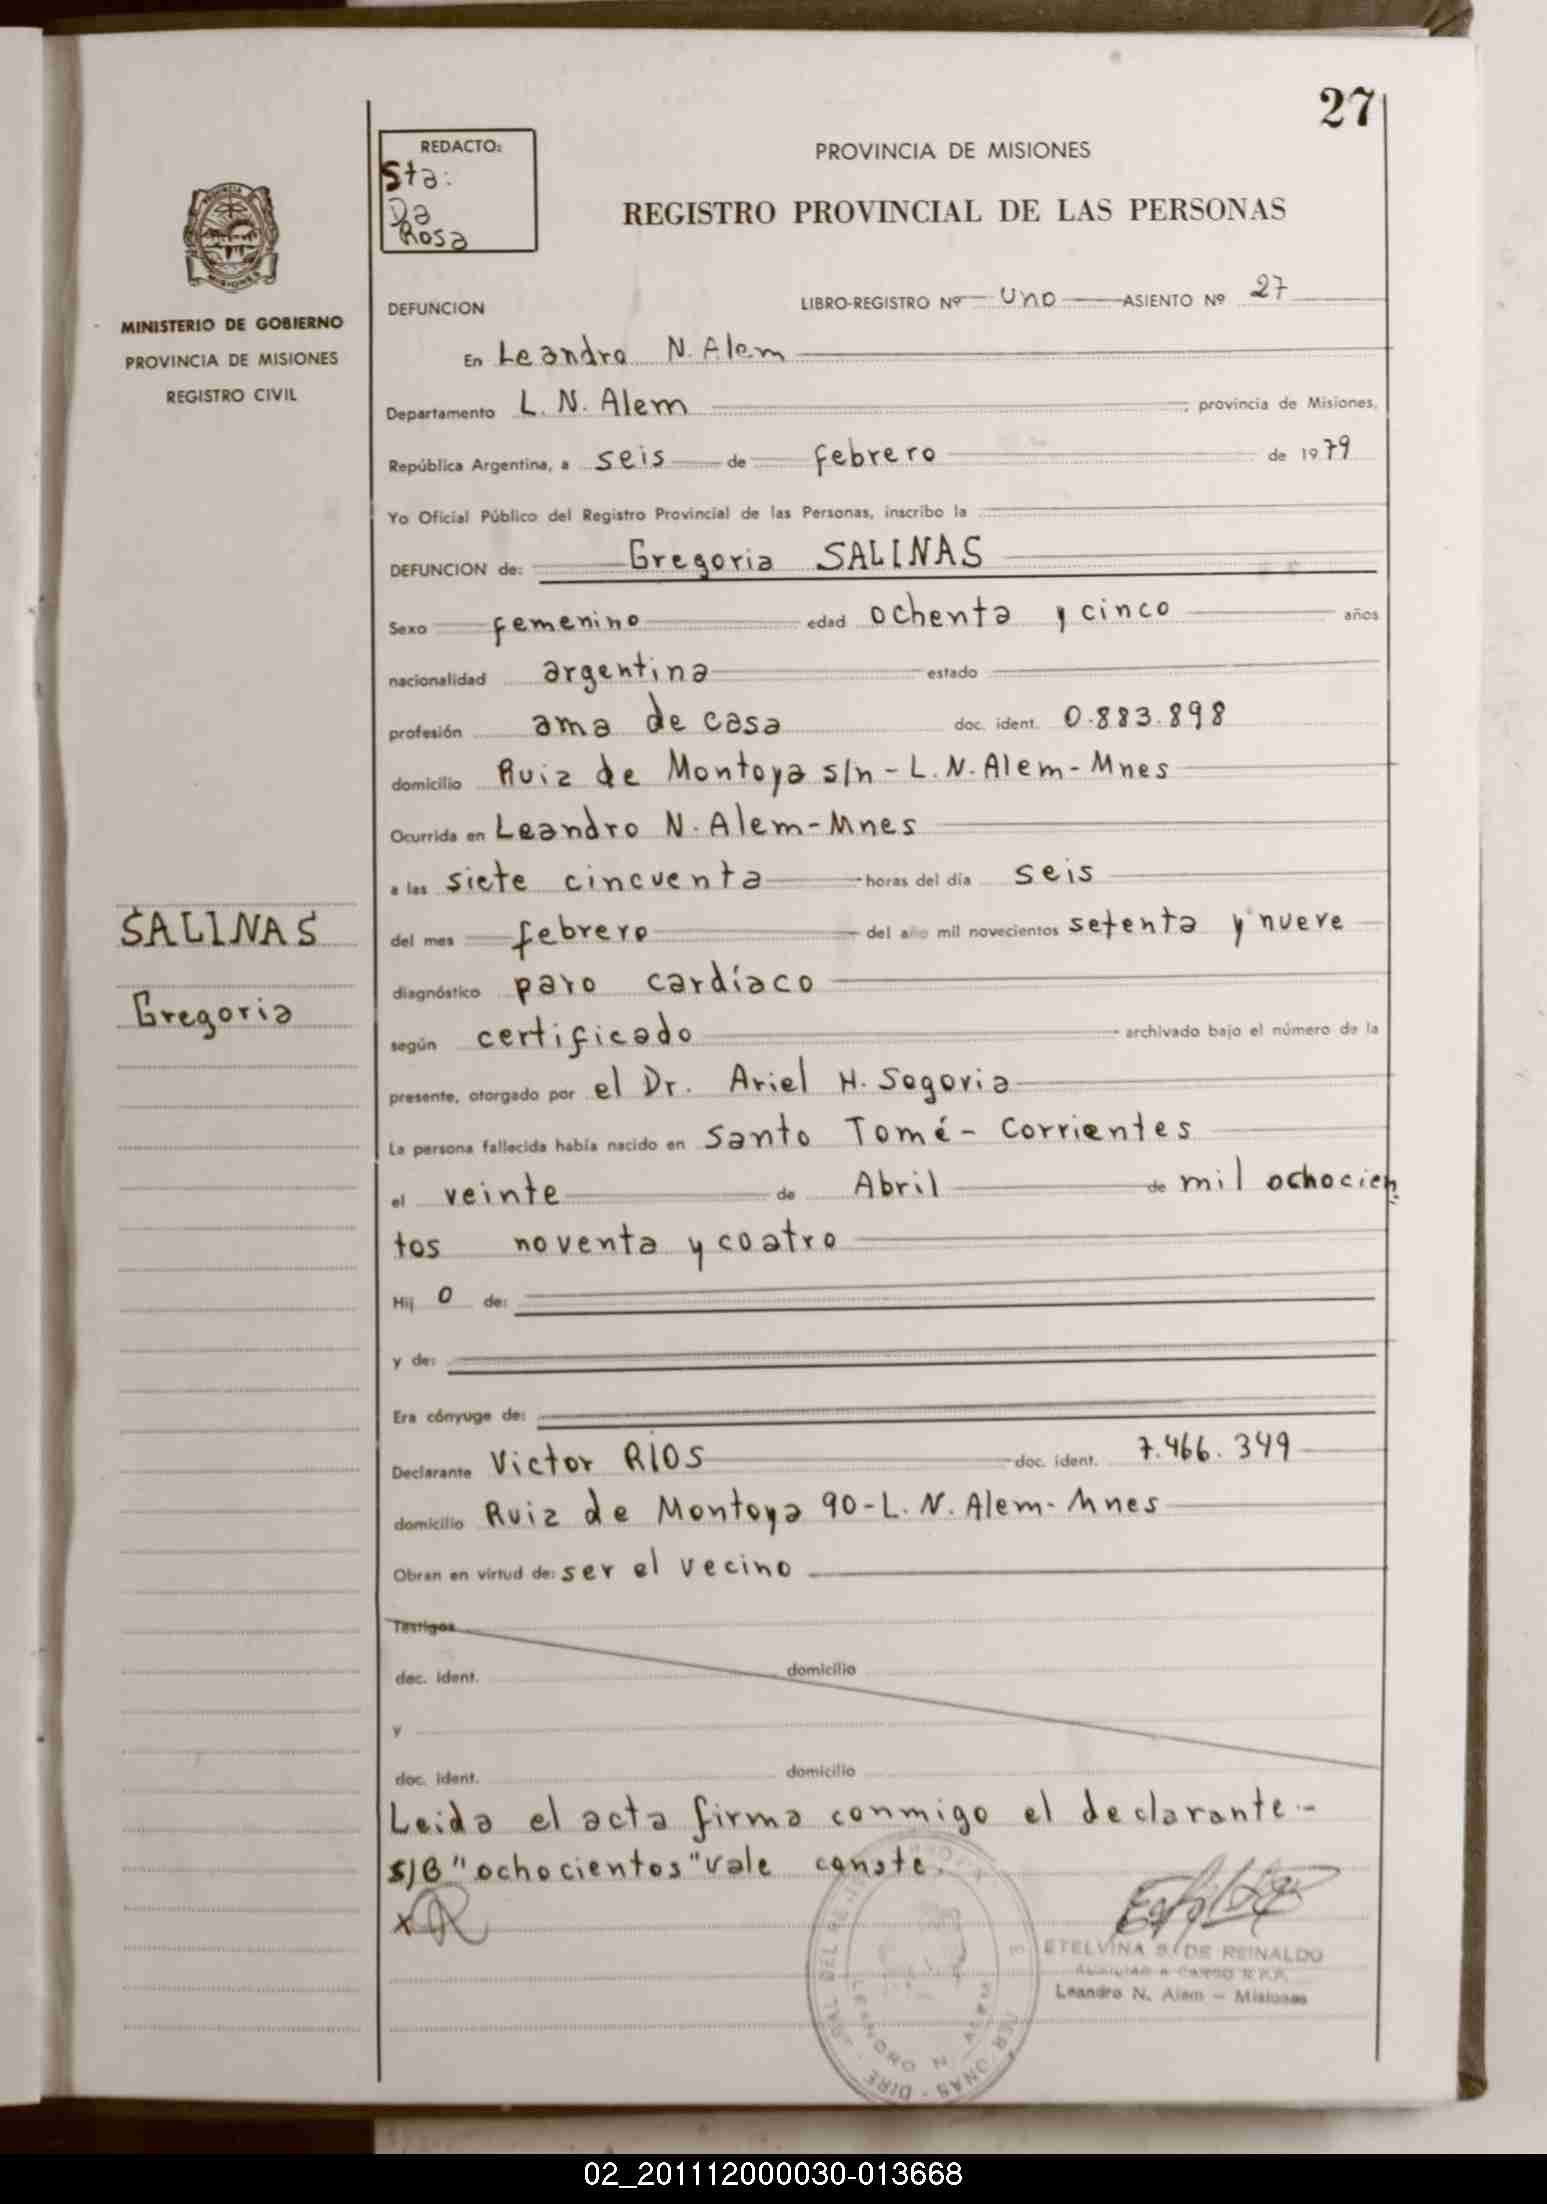 27
REDACTO:
Sta:
Da
Rosa
PROVINCIA DE MISIONES
REGISTRO PROVINCIAL DE LAS PERSONAS
MINISTERIO DE GOBIERNO
PROVINCIA DE MISIONES
REGISTRO CIVIL
DEFUNCION LIBRO-REGISTRO Nº Uno ASIENTO Nº 27
En Leandro N. Alem
Departamento L. N. Alem, provincia de Misiones,
República Argentina, a seis de febrero de 1979
Yo Oficial Público del Registro Provincial de las Personas, inscribo la
DEFUNCION de: Gregoria SALINAS
Sexo femenino edad ochenta y cinco años
nacionalidad argentina estado
profesión ama de casa doc. ident. 0.883.898
domicilio Ruiz de Montoya s/n - L. N. Alem - Mnes
Ocurrida en Leandro N. Alem - Mnes
a las siete cincuenta horas del día seis
SALINAS
Gregoria
del mes febrero del año mil novecientos setenta y nueve
diagnóstico paro cardíaco
según certificado archivado bajo el número de la
presente, otorgado por el Dr. Ariel H. Segovia
La persona fallecida había nacido en Santo Tomé - Corrientes
el veinte de Abril de mil ochocien
tos noventa y coatro
Hij o de:
y de:
Era cónyuge de:
Declarante Victor RIOS doc. ident. 7.466.349
domicilio Ruiz de Montoya 90 - L. N. Alem - Mnes
Obran en virtud de: ser el vecino
Testigos
doc. ident. domicilio
y
doc. ident. domicilio
Leida el acta firma conmigo el declarante.-
S/B "ochocientos" vale conste.
x R
ETELVINA S. DE REINALDO
AUXILIAR A CARGO R.P.P.
Leandro N. Alem - Misiones
LEANDRO N. ALEM
02_201112000030-013668